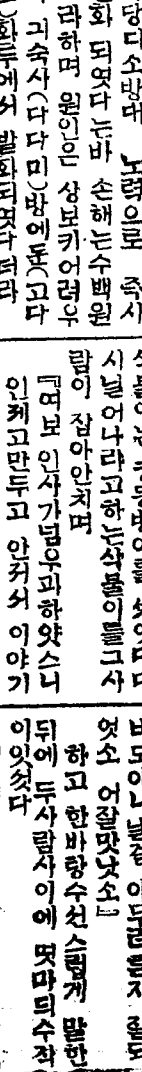 당디소방대 노력으로 즉시
화 되엿다는바 손해는수백원
라하며 원인은 상보키어려우
귀숙사(다다미)방에둔(고다
화두에서 발화되엿다더라
시널어나라고하는삭불이를그사
람이 잡아안치며
『여보 인사가넘우과하얏스니
인제고만두고 안저서 이야기
엇소 어잘맛낫소」
하고 한바랑수선스럽게 말한
뒤에 두사람사이에 몃마듸수작
이잇섯다